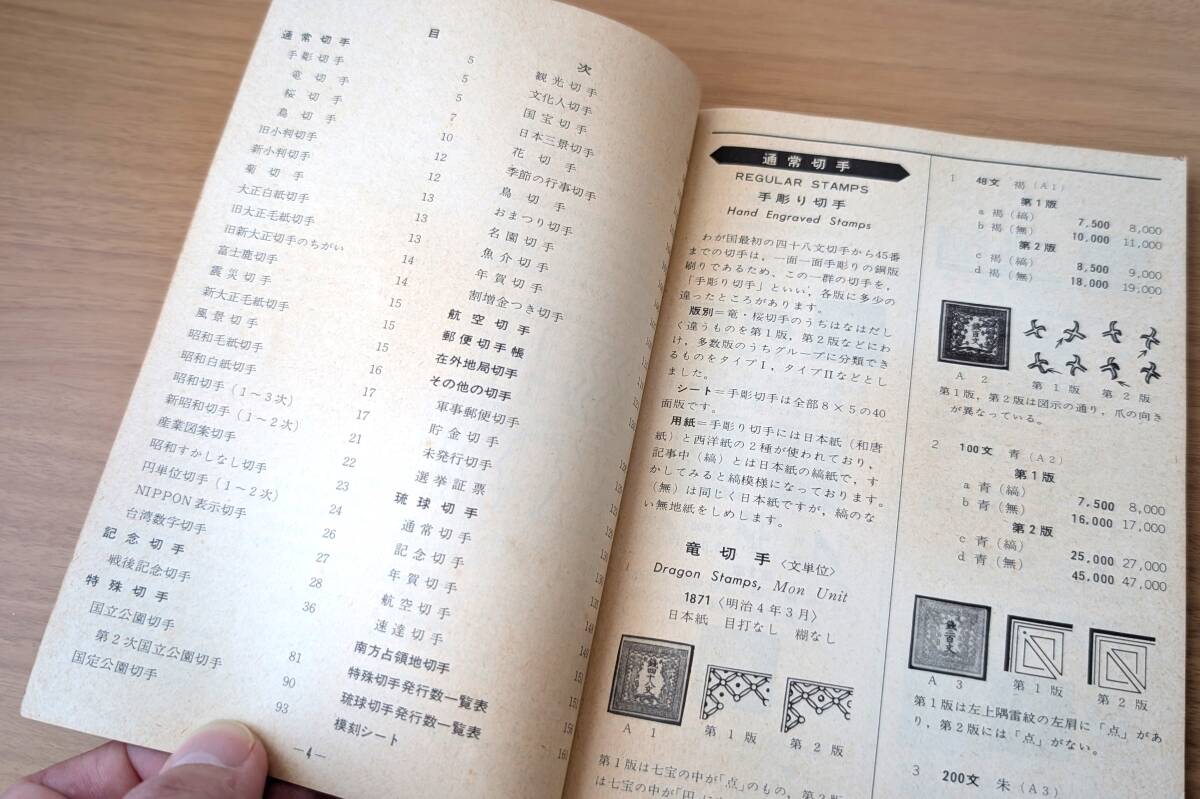 目　次
通常切手 5
手彫切手 5
竜切手 5
桜切手 7
鳥切手 10
旧小判切手 12
新小判切手 12
菊切手 13
大正白紙切手 13
旧大正毛紙切手 13
旧新大正切手のちがい 14
富士鹿切手 14
震災切手 15
新大正毛紙切手 15
風景切手 15
昭和毛紙切手 16
昭和白紙切手 17
昭和切手（1～3次） 17
新昭和切手（1～2次） 21
産業図案切手 22
昭和すかしなし切手 23
円単位切手（1～2次） 24
NIPPON表示切手 26
台湾数字切手 27
記念切手 28
戦後記念切手 36
特殊切手
国立公園切手 81
第2次国立公園切手 90
国定公園切手 93
観光切手
文化人切手
国宝切手
日本三景切手
花切手
季節の行事切手
鳥切手
おまつり切手
名園切手
魚介切手
年賀切手
割増金つき切手
航空切手
郵便切手帳
在外地局切手
その他の切手
軍事郵便切手
貯金切手
未発行切手
選挙証票
琉球切手
通常切手
記念切手
年賀切手
航空切手
速達切手
南方占領地切手
特殊切手発行数一覧表
琉球切手発行数一覧表
模刻シート
—4—
通常切手
REGULAR STAMPS
手彫り切手
Hand Engraved Stamps
わが国最初の四十八文切手から45番
までの切手は，一面一面手彫りの銅版
刷りであるため，この一群の切手を，
「手彫り切手」といい，各版に多少の
違ったところがあります。
版別＝竜・桜切手のうちはなはだし
く違うものを第1版，第2版などにわ
け，多数版のうちグループに分類でき
るものをタイプⅠ，タイプⅡなどとし
ました。
シート＝手彫切手は全部8×5の40
面版です。
用紙＝手彫り切手には日本紙（和唐
紙）と西洋紙の2種が使われており，
記事中（縞）とは日本紙の縞紙で，す
かしてみると縞模様になっております。
（無）は同じく日本紙ですが，縞のな
い無地紙をしめします。
竜切手〈文単位〉
Dragon Stamps, Mon Unit
1871〈明治4年3月〉
日本紙　目打なし　糊なし
銭四十八文
A 1　第1版　第2版
第1版は七宝の中が「点」のもの，第2版
は七宝の中が「円」に
1　48文　褐（A1）
第1版
a 褐（縞） 7,500 8,000
b 褐（無） 10,000 11,000
第2版
c 褐（縞） 8,500 9,000
d 褐（無） 18,000 19,000
銭百文
A 2　第1版　第2版
第1版，第2版は図示の通り，爪の向き
が異なっている。
2　100文　青（A2）
第1版
a 青（縞） 7,500 8,000
b 青（無） 16,000 17,000
第2版
c 青（縞） 25,000 27,000
d 青（無） 45,000 47,000
銭二百文
A 3　第1版　第2版
第1版は左上隅雷紋の左肩に「点」があ
り，第2版には「点」がない。
3　200文　朱（A3）